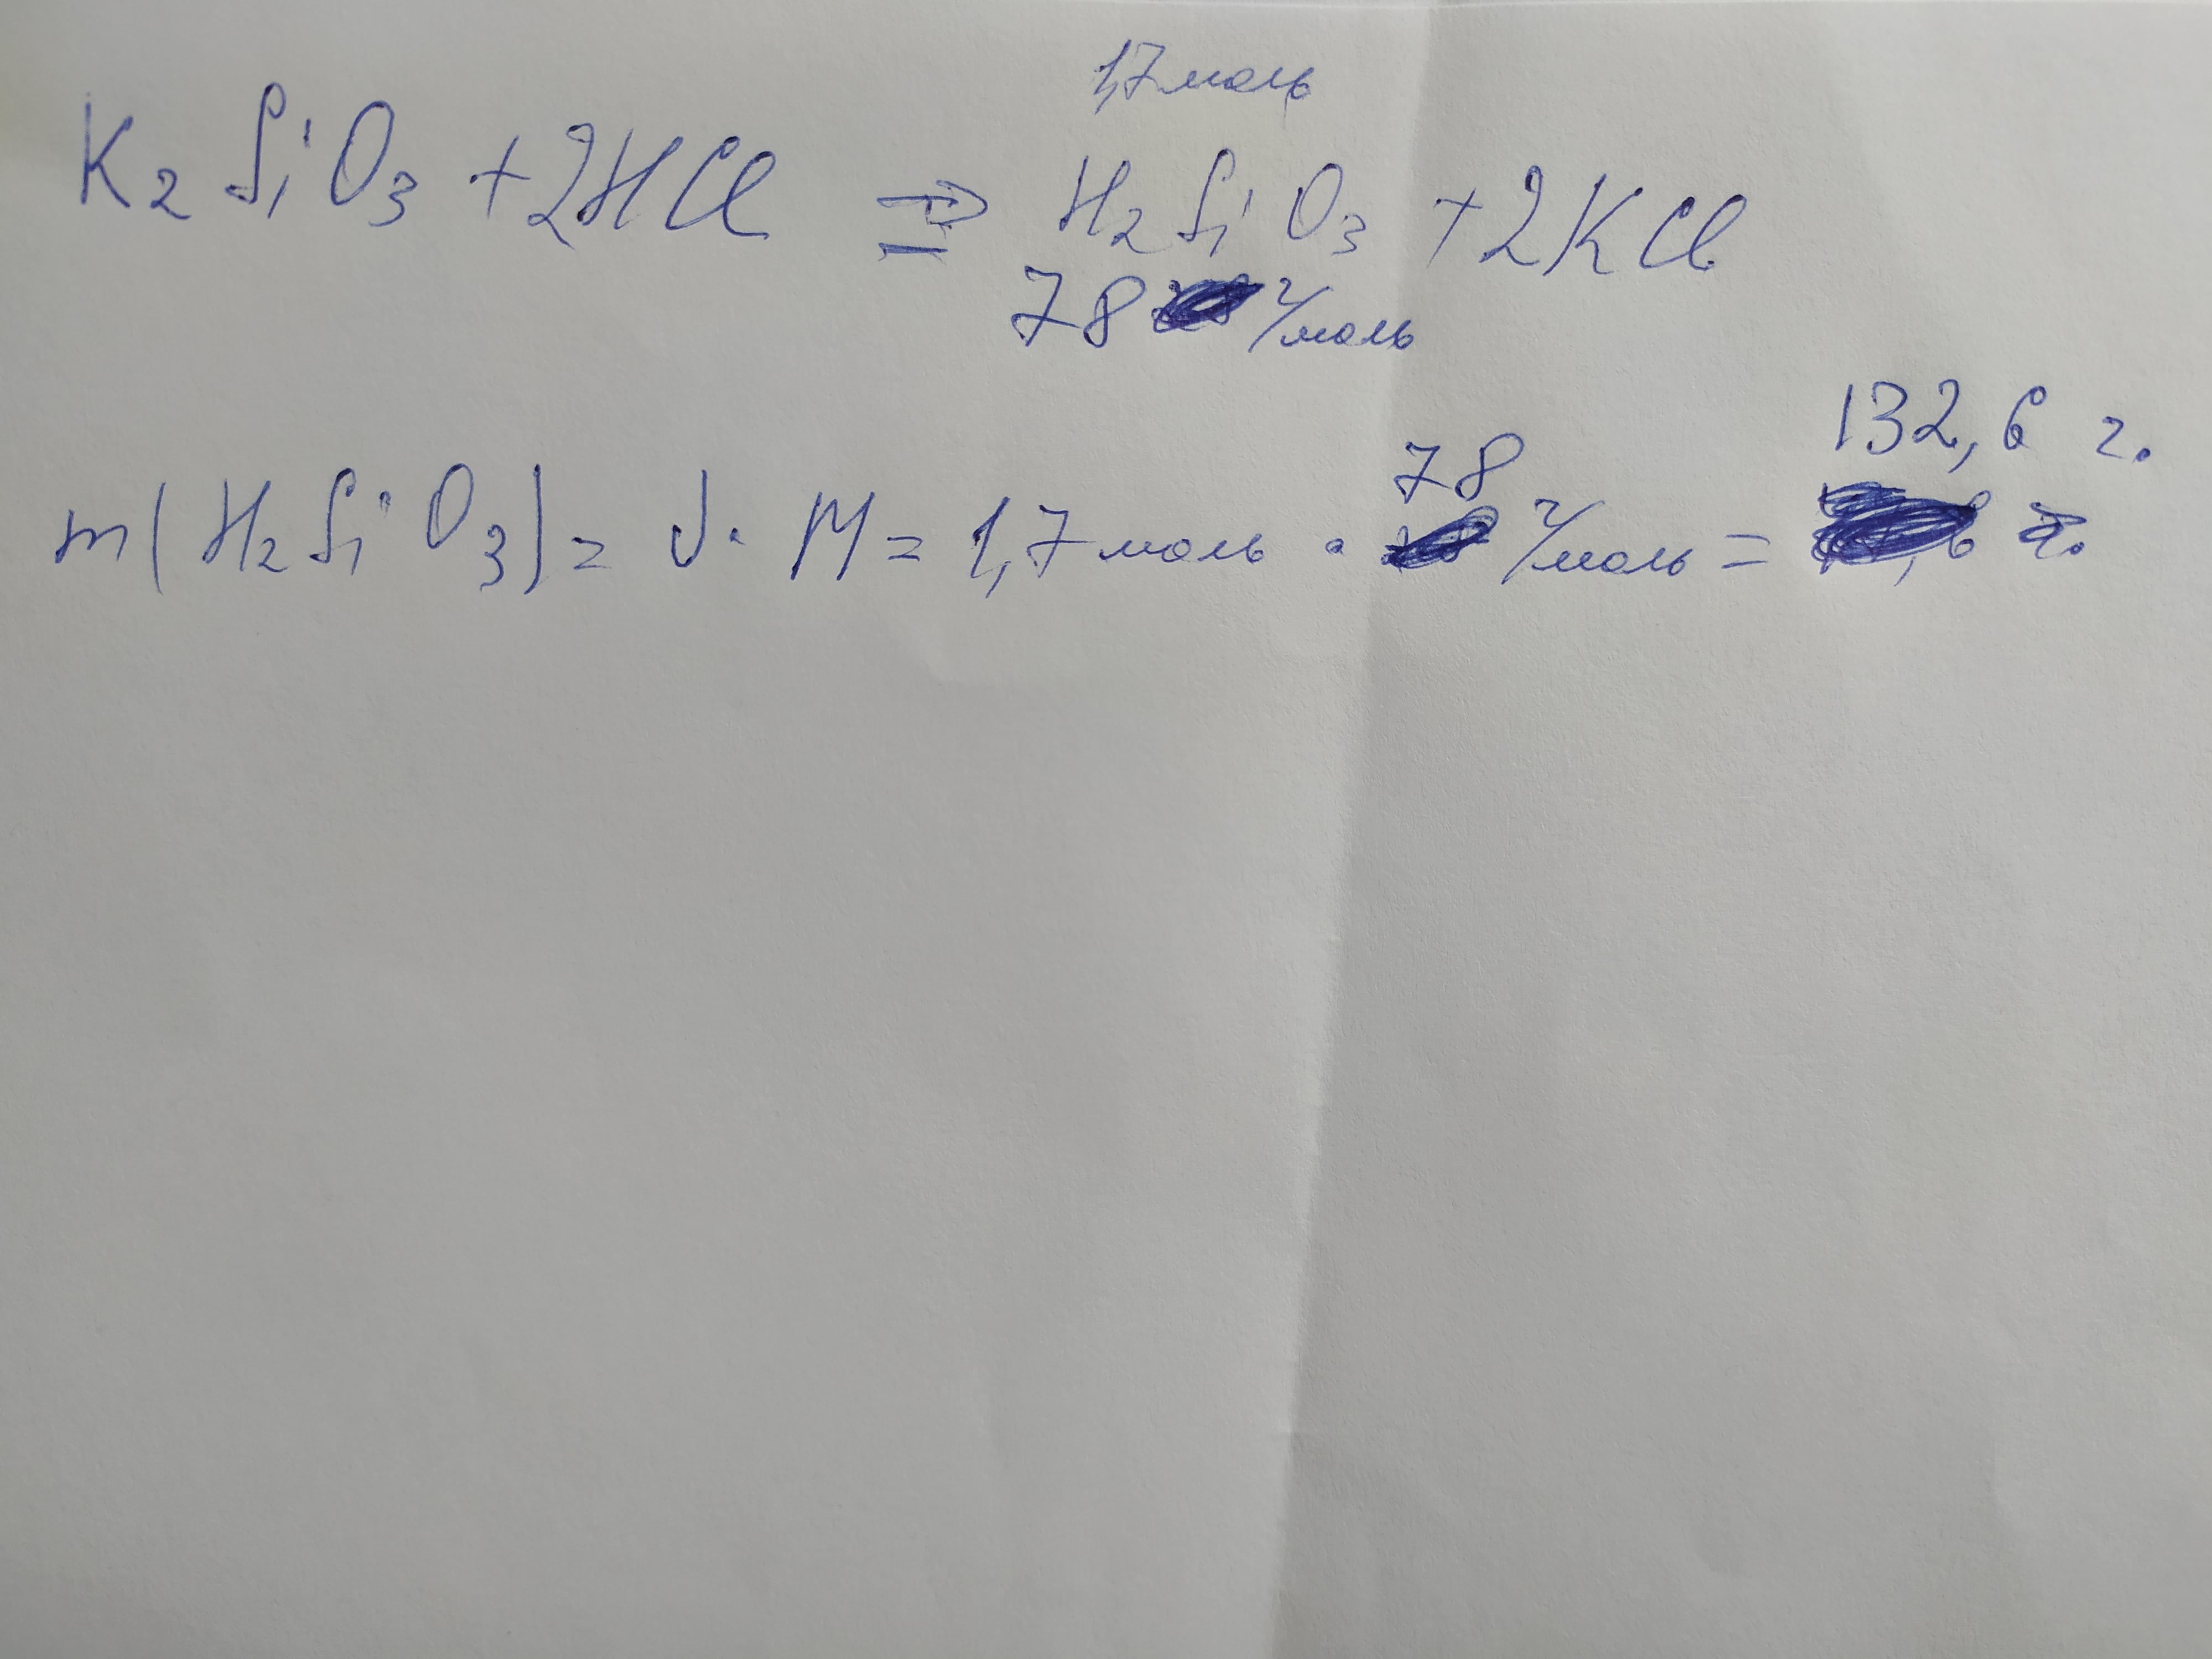 1,7 моль
K₂SiO₃ + 2HCl ⇒ H₂SiO₃ + 2KCl
78 г/моль
132,6 г.
78
m(H₂SiO₃) = ν · M = 1,7 моль · г/моль = г.